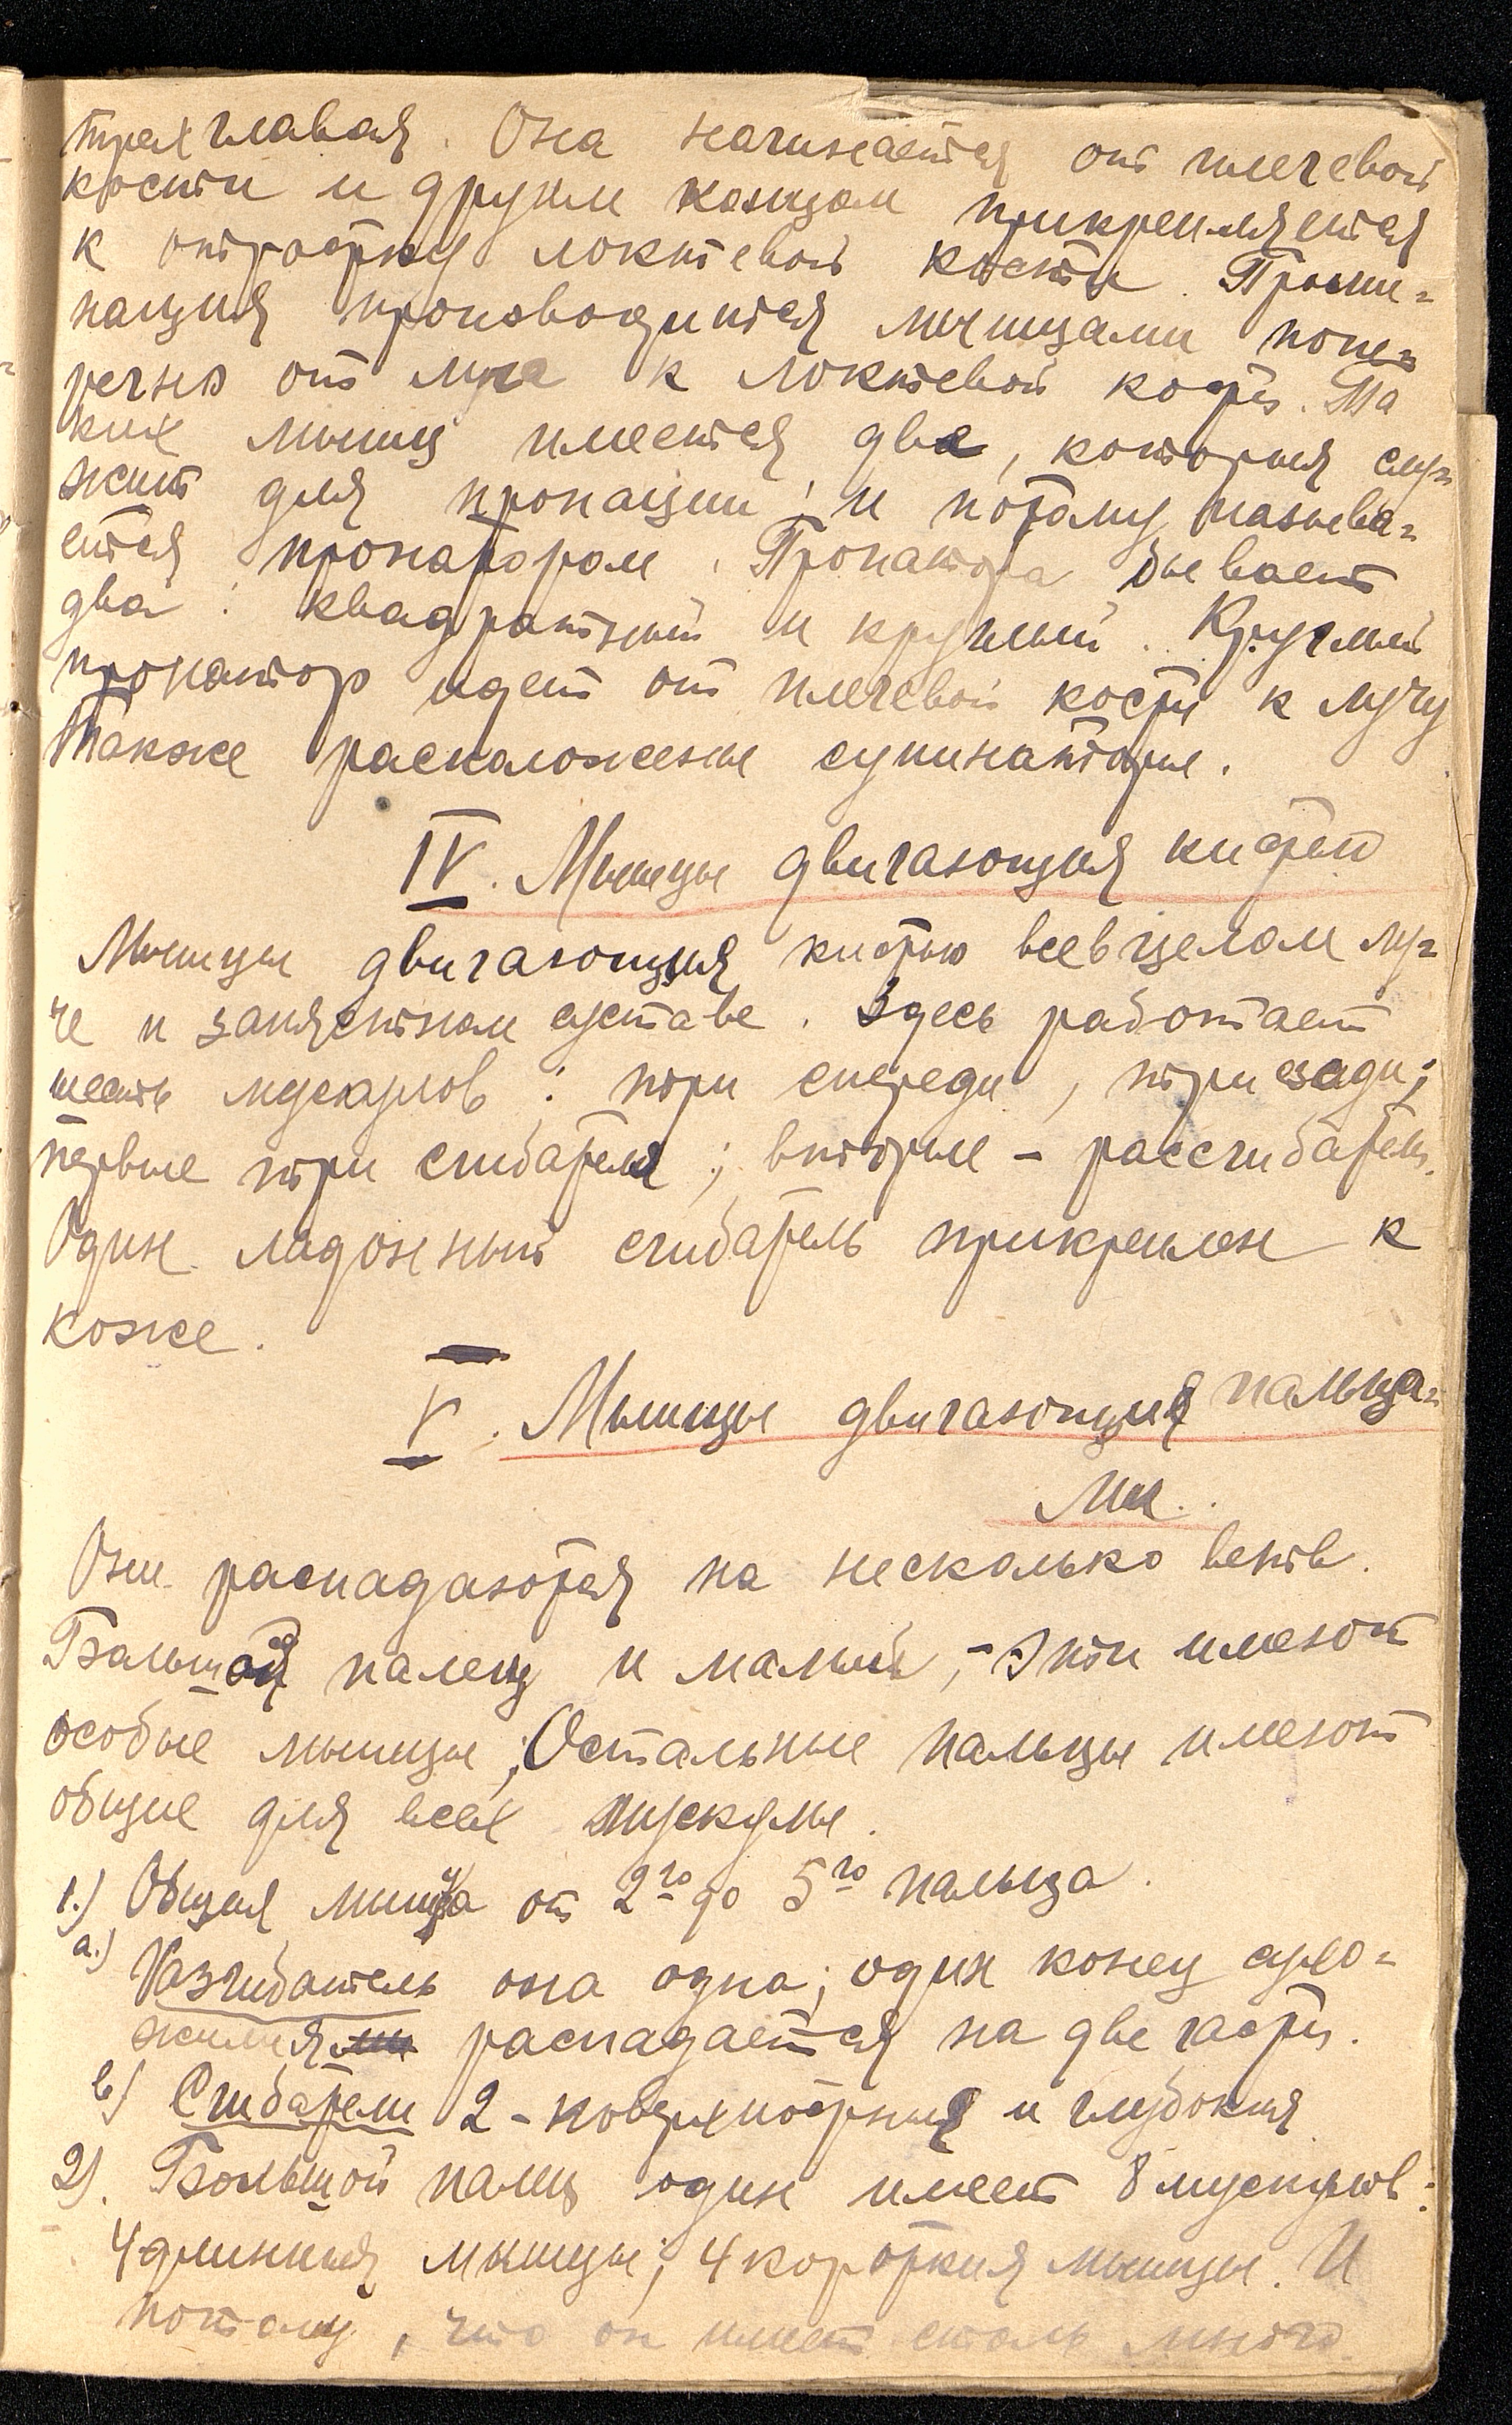 трехглавая. Она начинается от плечевой
кости и другим концом прикрепляется
к отростку локтевой кости. Прони=
нация производится мышцами попе=
речно от луча к локтевой кости. Та
ких мышц имеется две, которыя слу=
жит для пронации, и потому называ=
ется пронатором. Пронатора бывает
два: квадратный и круглый. Круглый
пронатор идет от плечевой кости к лучу
Также расположены супинаторы.
IV. Мышцы двигающия кистью
Мышцы двигающия кистью всевцелом лу=
че и запястном суставе. Здесь работает
шесть мускулов: три спереди, три сзади;
первые три сгибателя; вторые - рассгибатели.
Один ладонный сгибатель прикреплен к
коже.
V. Мышцы двигающия пальца=
ми.
Они распадаются на несколько ветв.
Большой палец и малый, - эти имеют
особые мышцы; Остальные пальцы имеют
общие для всех мускулы.
1.) Общая мышца от 2го до 5го пальца.
а.) Разгибатель она одна; один конец сухо=
жилия распадается на две части.
в) Сгибатели 2 - поверхностныя и глубокия
2). Большой палец один имеет 8 мускулов:
4 длинныя мышцы; 4 короткия мышцы. И
потому, что он имеет столь много